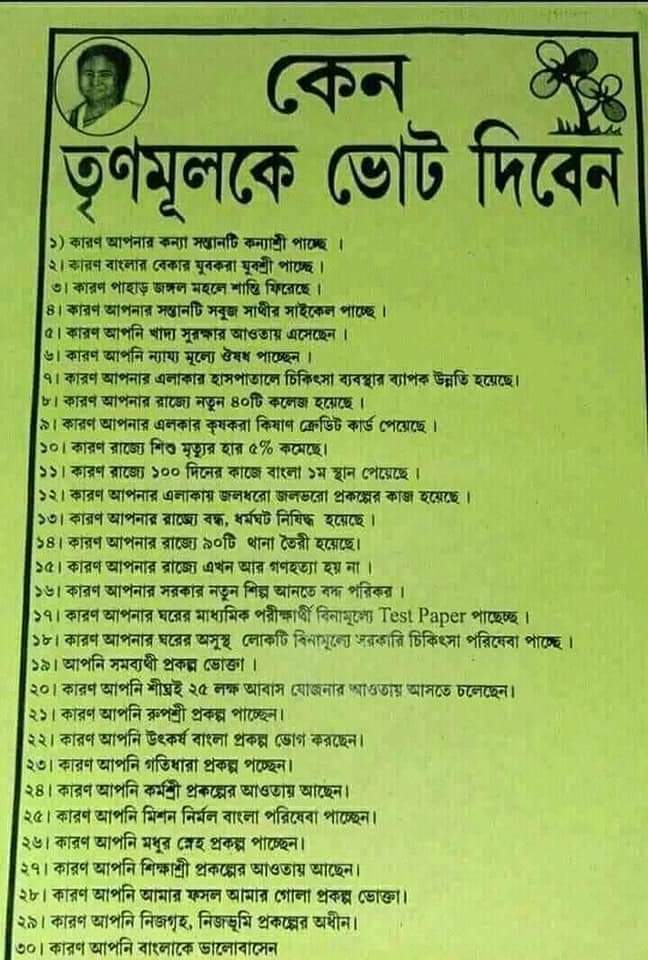 কেন
তৃণমূলকে ভোট দিবেন
১) কারণ আপনার কন্যা সন্তানটি কন্যাশ্রী পাচ্ছে ।
২। কারণ বাংলার বেকার যুবকরা যুবশ্রী পাচ্ছে ।
৩। কারণ পাহাড় জঙ্গল মহলে শান্তি ফিরেছে ।
৪। কারণ আপনার সন্তানটি সবুজ সাথীর সাইকেল পাচ্ছে ।
৫। কারণ আপনি খাদ্য সুরক্ষার আওতায় এসেছেন ।
৬। কারণ আপনি ন্যায্য মূল্যে ঔষধ পাচ্ছেন ।
৭। কারণ আপনার এলাকার হাসপাতালে চিকিৎসা ব্যবস্থার ব্যাপক উন্নতি হয়েছে।
৮। কারণ আপনার রাজ্যে নতুন ৪০টি কলেজ হয়েছে ।
৯। কারণ আপনার এলকার কৃষকরা কিষাণ ক্রেডিট কার্ড পেয়েছে ।
১০। কারণ রাজ্যে শিশু মৃত্যুর হার ৫% কমেছে।
১১। কারণ রাজ্যে ১০০ দিনের কাজে বাংলা ১ম স্থান পেয়েছে ।
১২। কারণ আপনার এলাকায় জলধরো জলভরো প্রকল্পের কাজ হয়েছে ।
১৩। কারণ আপনার রাজ্যে বন্ধ, ধর্মঘট নিষিদ্ধ হয়েছে ।
১৪। কারণ আপনার রাজ্যে ৯০টি থানা তৈরী হয়েছে।
১৫। কারণ আপনার রাজ্যে এখন আর গণহত্যা হয় না ।
১৬। কারণ আপনার সরকার নতুন শিল্প আনতে বদ্ধ পরিকর ।
১৭। কারণ আপনার ঘরের মাধ্যমিক পরীক্ষার্থী বিনামূল্যে Test Paper পাছেচ্ছ ।
১৮। কারণ আপনার ঘরের অসুস্থ লোকটি বিনামূল্যে সরকারি চিকিৎসা পরিষেবা পাচ্ছে ।
১৯। আপনি সমব্যথী প্রকল্প ভোক্তা ।
২০। কারণ আপনি শীঘ্রই ২৫ লক্ষ আবাস যোজনার আওতায় আসতে চলেছেন।
২১। কারণ আপনি রুপশ্রী প্রকল্প পাচ্ছেন।
২২। কারণ আপনি উৎকর্ষ বাংলা প্রকল্প ভোগ করছেন।
২৩। কারণ আপনি গতিধারা প্রকল্প পচ্ছেন।
২৪। কারণ আপনি কর্মশ্রী প্রকল্পের আওতায় আছেন।
২৫। কারণ আপনি মিশন নির্মল বাংলা পরিষেবা পাচ্ছেন।
২৬। কারণ আপনি মধুর স্নেহ প্রকল্প পাচ্ছেন।
২৭। কারণ আপনি শিক্ষাশ্রী প্রকল্পের আওতায় আছেন।
২৮। কারণ আপনি আমার ফসল আমার গোলা প্রকল্প ভোক্তা।
২৯। কারণ আপনি নিজগৃহ, নিজভূমি প্রকল্পের অধীন।
৩০। কারণ আপনি বাংলাকে ভালোবাসেন